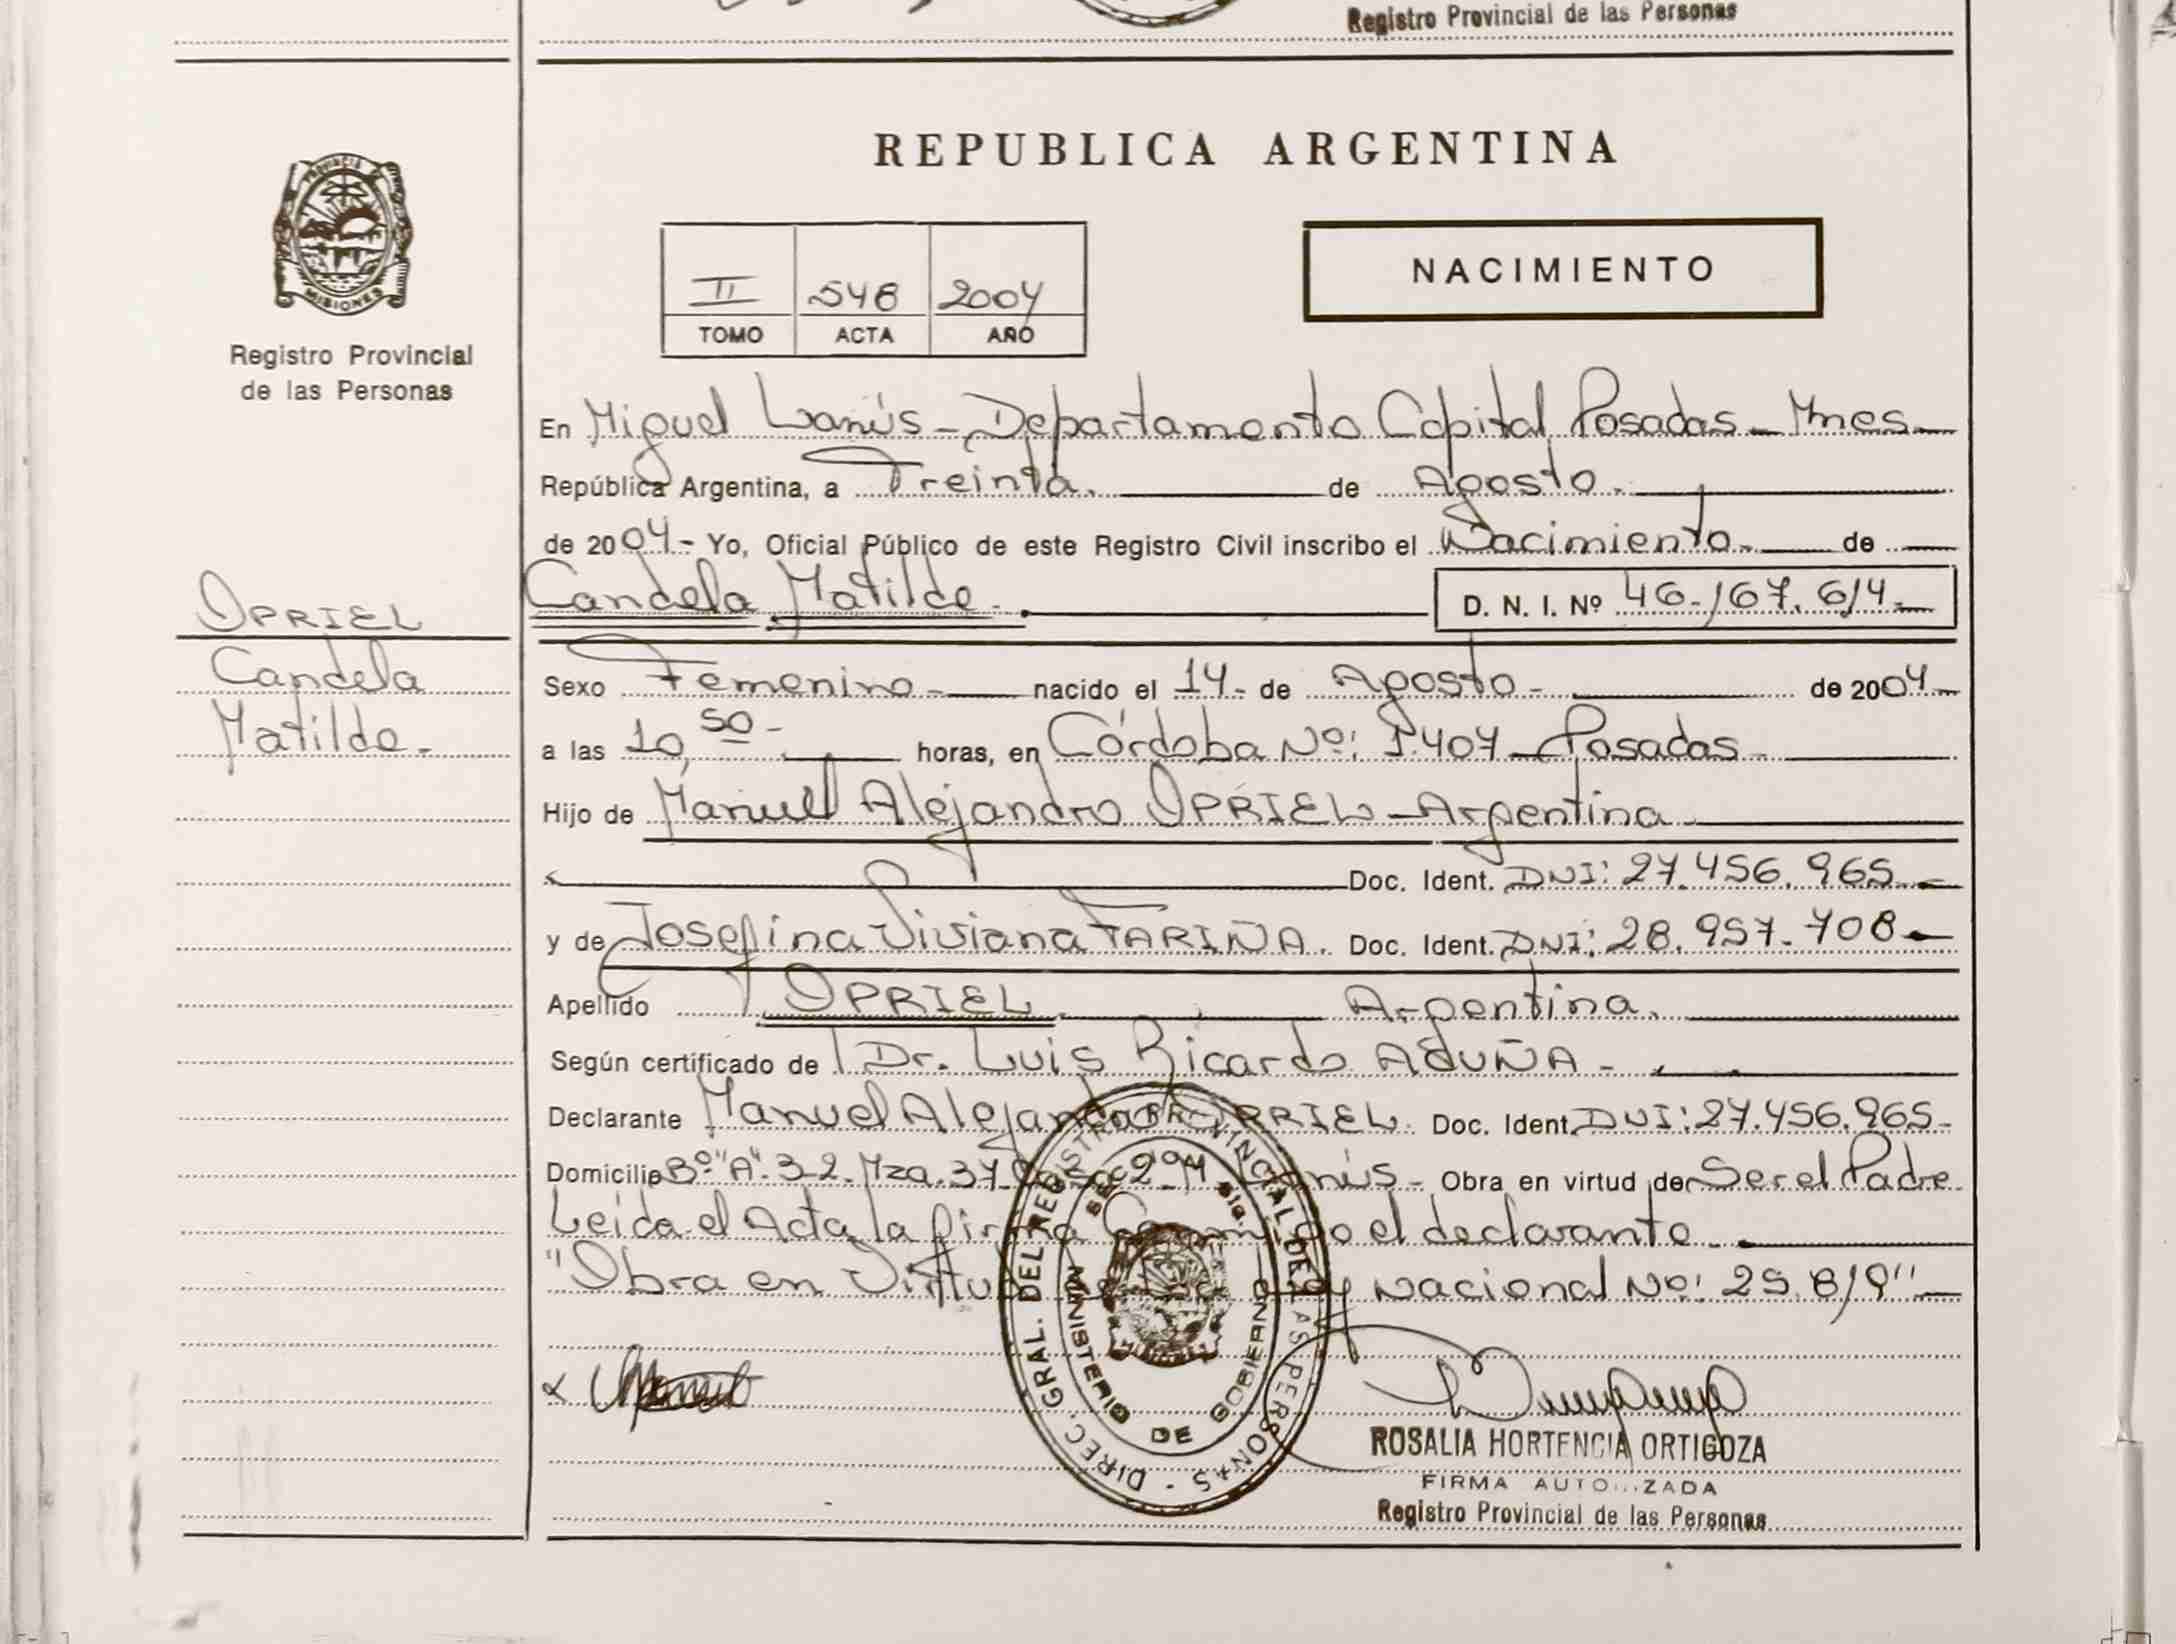 Registro Provincial de las Personas
REPUBLICA ARGENTINA
PROVINCIA DE
MISIONES
Registro Provincial
de las Personas
II 548 2004
TOMO ACTA AÑO
NACIMIENTO
En Miguel Lanús - Departamento Capital Posadas - Mnes -
República Argentina, a Treinta. de Agosto.
de 2004.- Yo, Oficial Público de este Registro Civil inscribo el Nacimiento. de
Candela Matilde. D. N. I. Nº 46.167.614.-
OPRIEL
Candela
Matilde.-
Sexo Femenino - nacido el 14 - de Agosto - de 2004 -
a las 10,50 - horas, en Córdoba Nº: 1.407 - Posadas -
Hijo de Manuel Alejandro OPRIEL - Argentina
Doc. Ident. DNI: 27.456.965.-
y de Josefina Viviana FARIÑA. Doc. Ident. DNI: 28.957.708 -
Apellido OPRIEL Argentina.
Según certificado de Dr. Luis Ricardo ACUÑA -
Declarante Manuel Alejandro OPRIEL. Doc. Ident. DNI: 27.456.965-
Domicilio Bº "A".3-2. Mza.37 Lanús - Obra en virtud de Ser el Padre
Leída el Acta, la firma el declarante
"Obra en Virtud Ley Nacional Nº: 25.819" -
DIREC. GRAL. DEL REGISTRO PROVINCIAL DE LAS PERSONAS
MINISTERIO DE GOBIERNO
ROSALIA HORTENCIA ORTIGOZA
FIRMA AUTORIZADA
Registro Provincial de las Personas